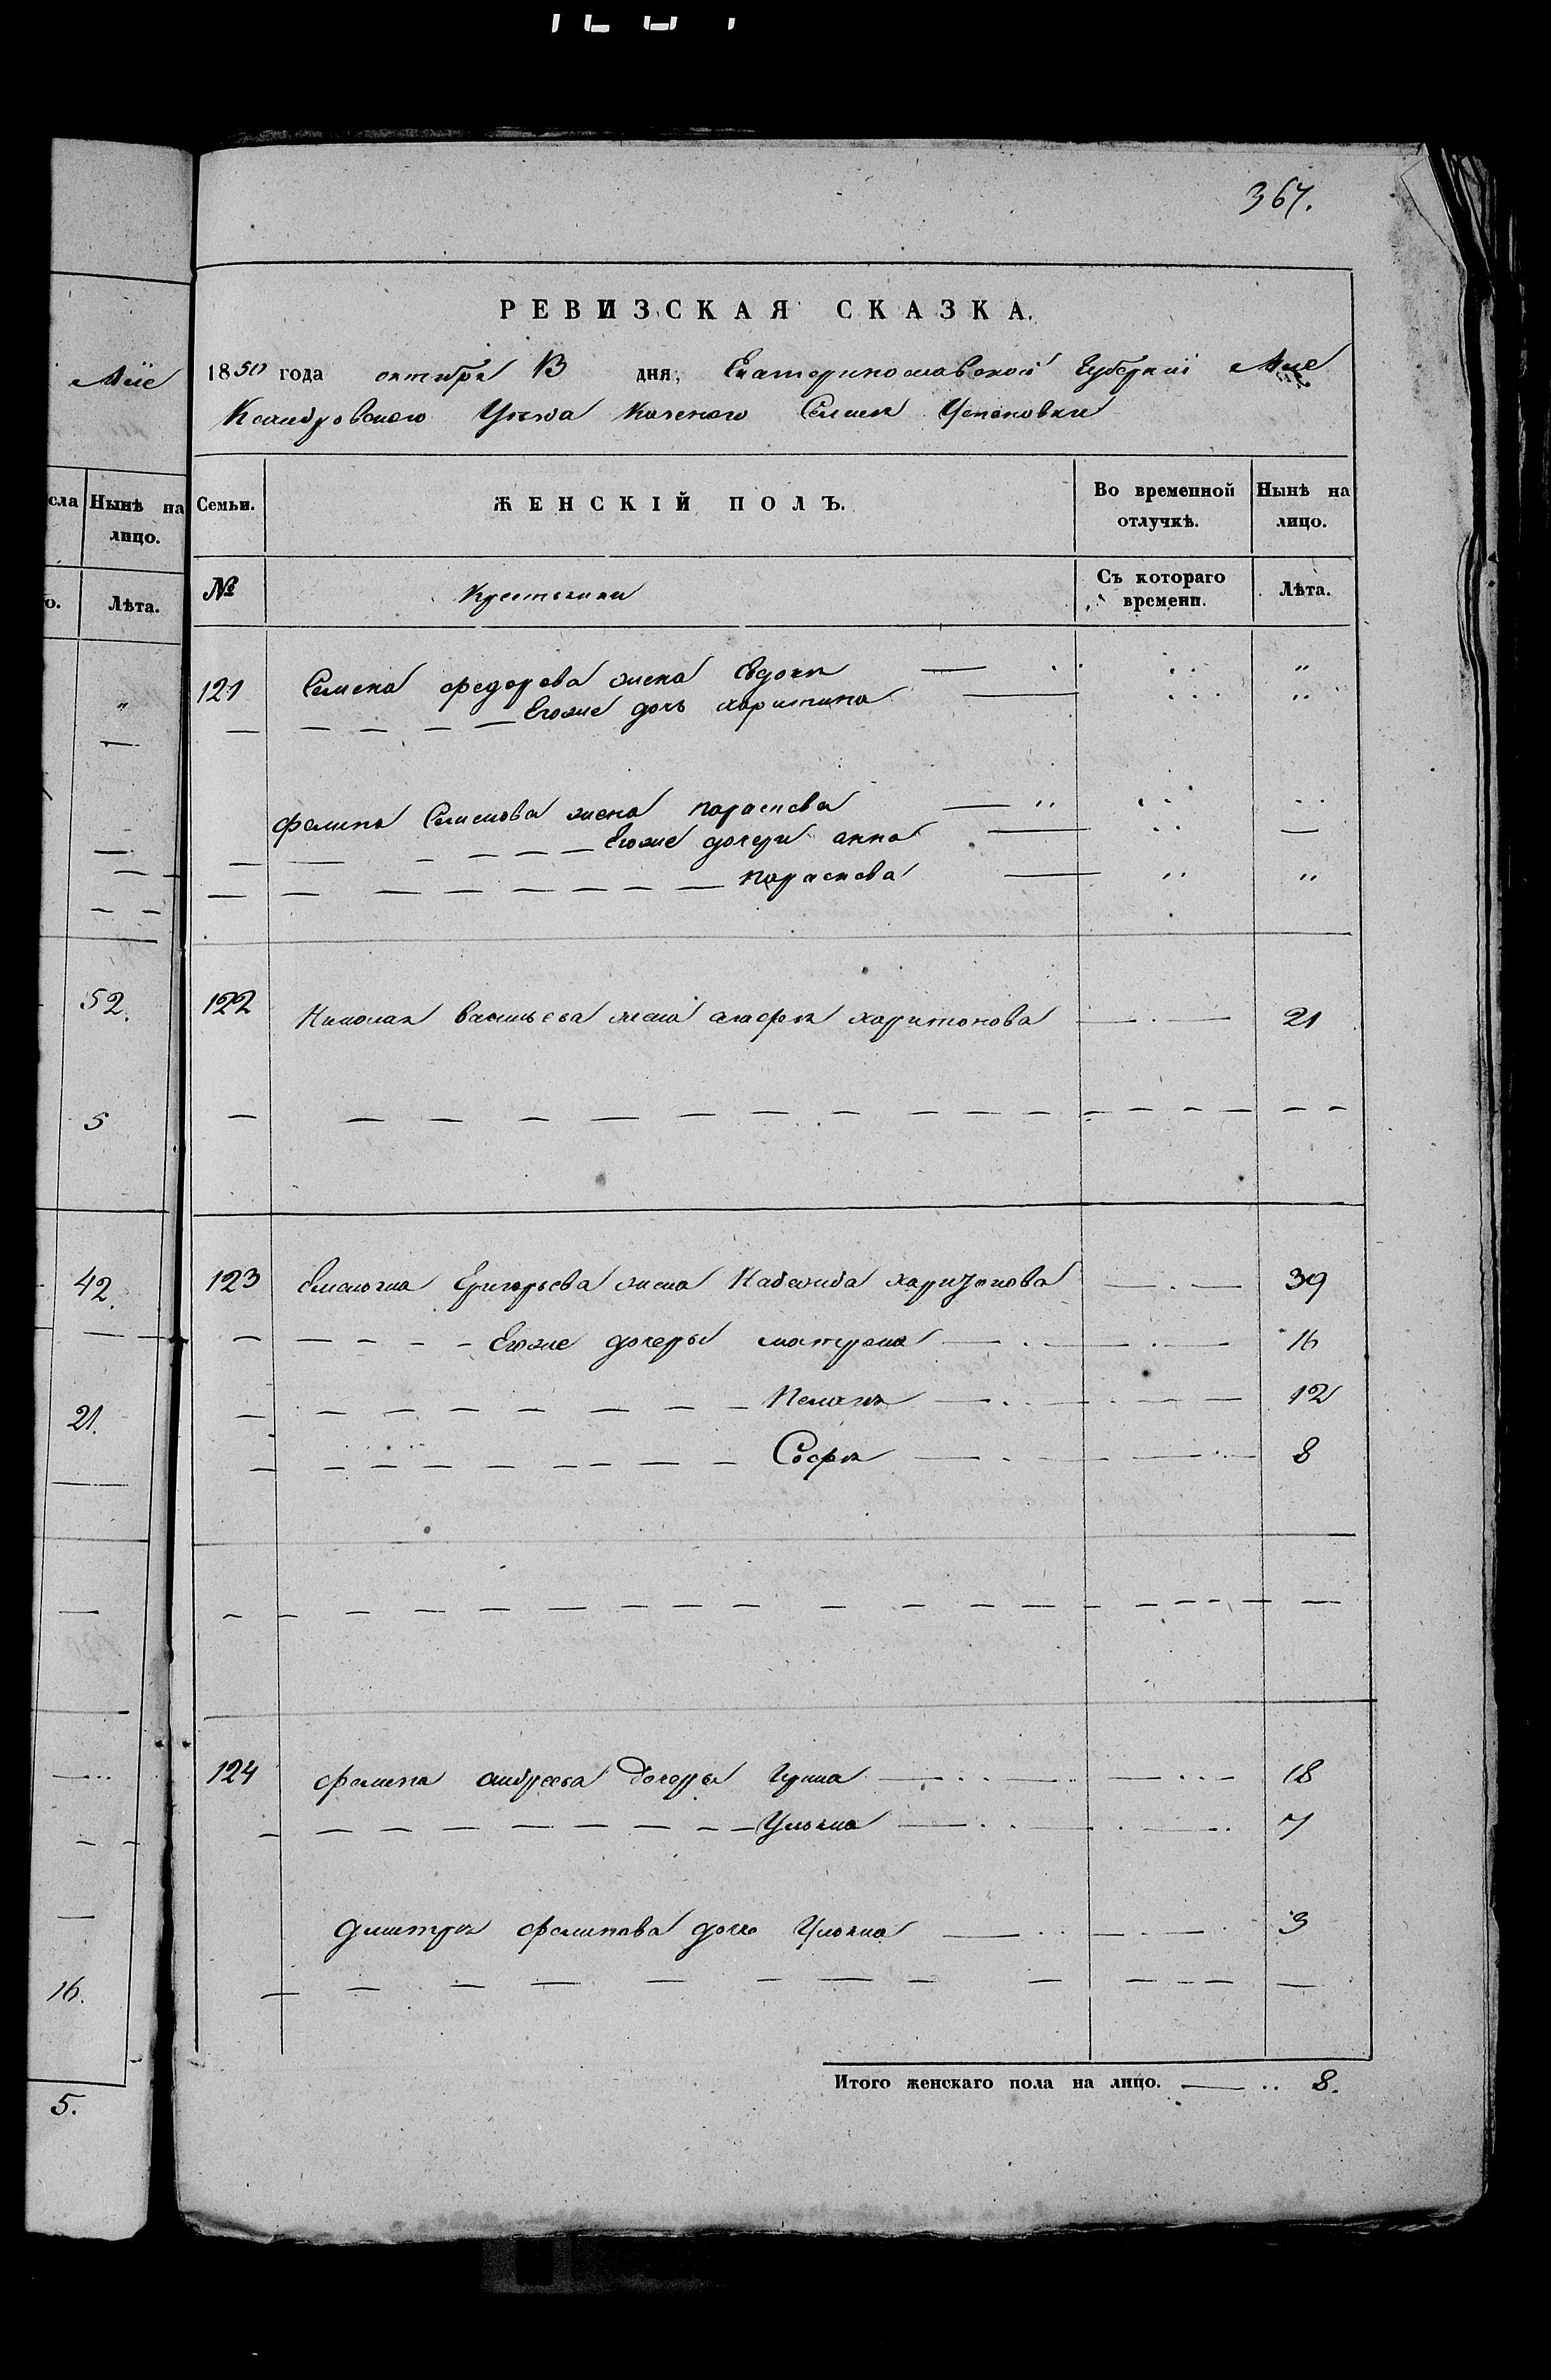 367.
РЕВИЗСКАЯ СКАЗКА.
1850 года октября 13 дня, Екатеринославской Губерніи Але
ксандровского Уѣзда Казеного Селенія Успеновки
Семьи. ЖЕНСКІЙ ПОЛЪ. Во временной отлучкѣ. Нынѣ на лицо.
№ Крестьянки Съ котораго времени. Лѣта.
121 Семена федорова жена Евдокия — „
Егоже дочь харитина — „
филипа Семенова жена параскева — „
Егоже дочери анна —
параскева — „
122 Николая васильева жена агафия харитонова — 21
123 Емельяна Григорьева жена Надежда харитонова — 39
Егоже дочеры матрона — 16
Пелагия — 12
София — 8
124 филипа андреева дочеры Ирина — 18
Ульяна — 7
дмитрия филипова дочь Ульяна — 3
Итого женскаго пола на лицо. — 8.
Але
сла Нынѣ на лицо.
о. Лѣта.
„
52.
5
42.
21.
16.
5.